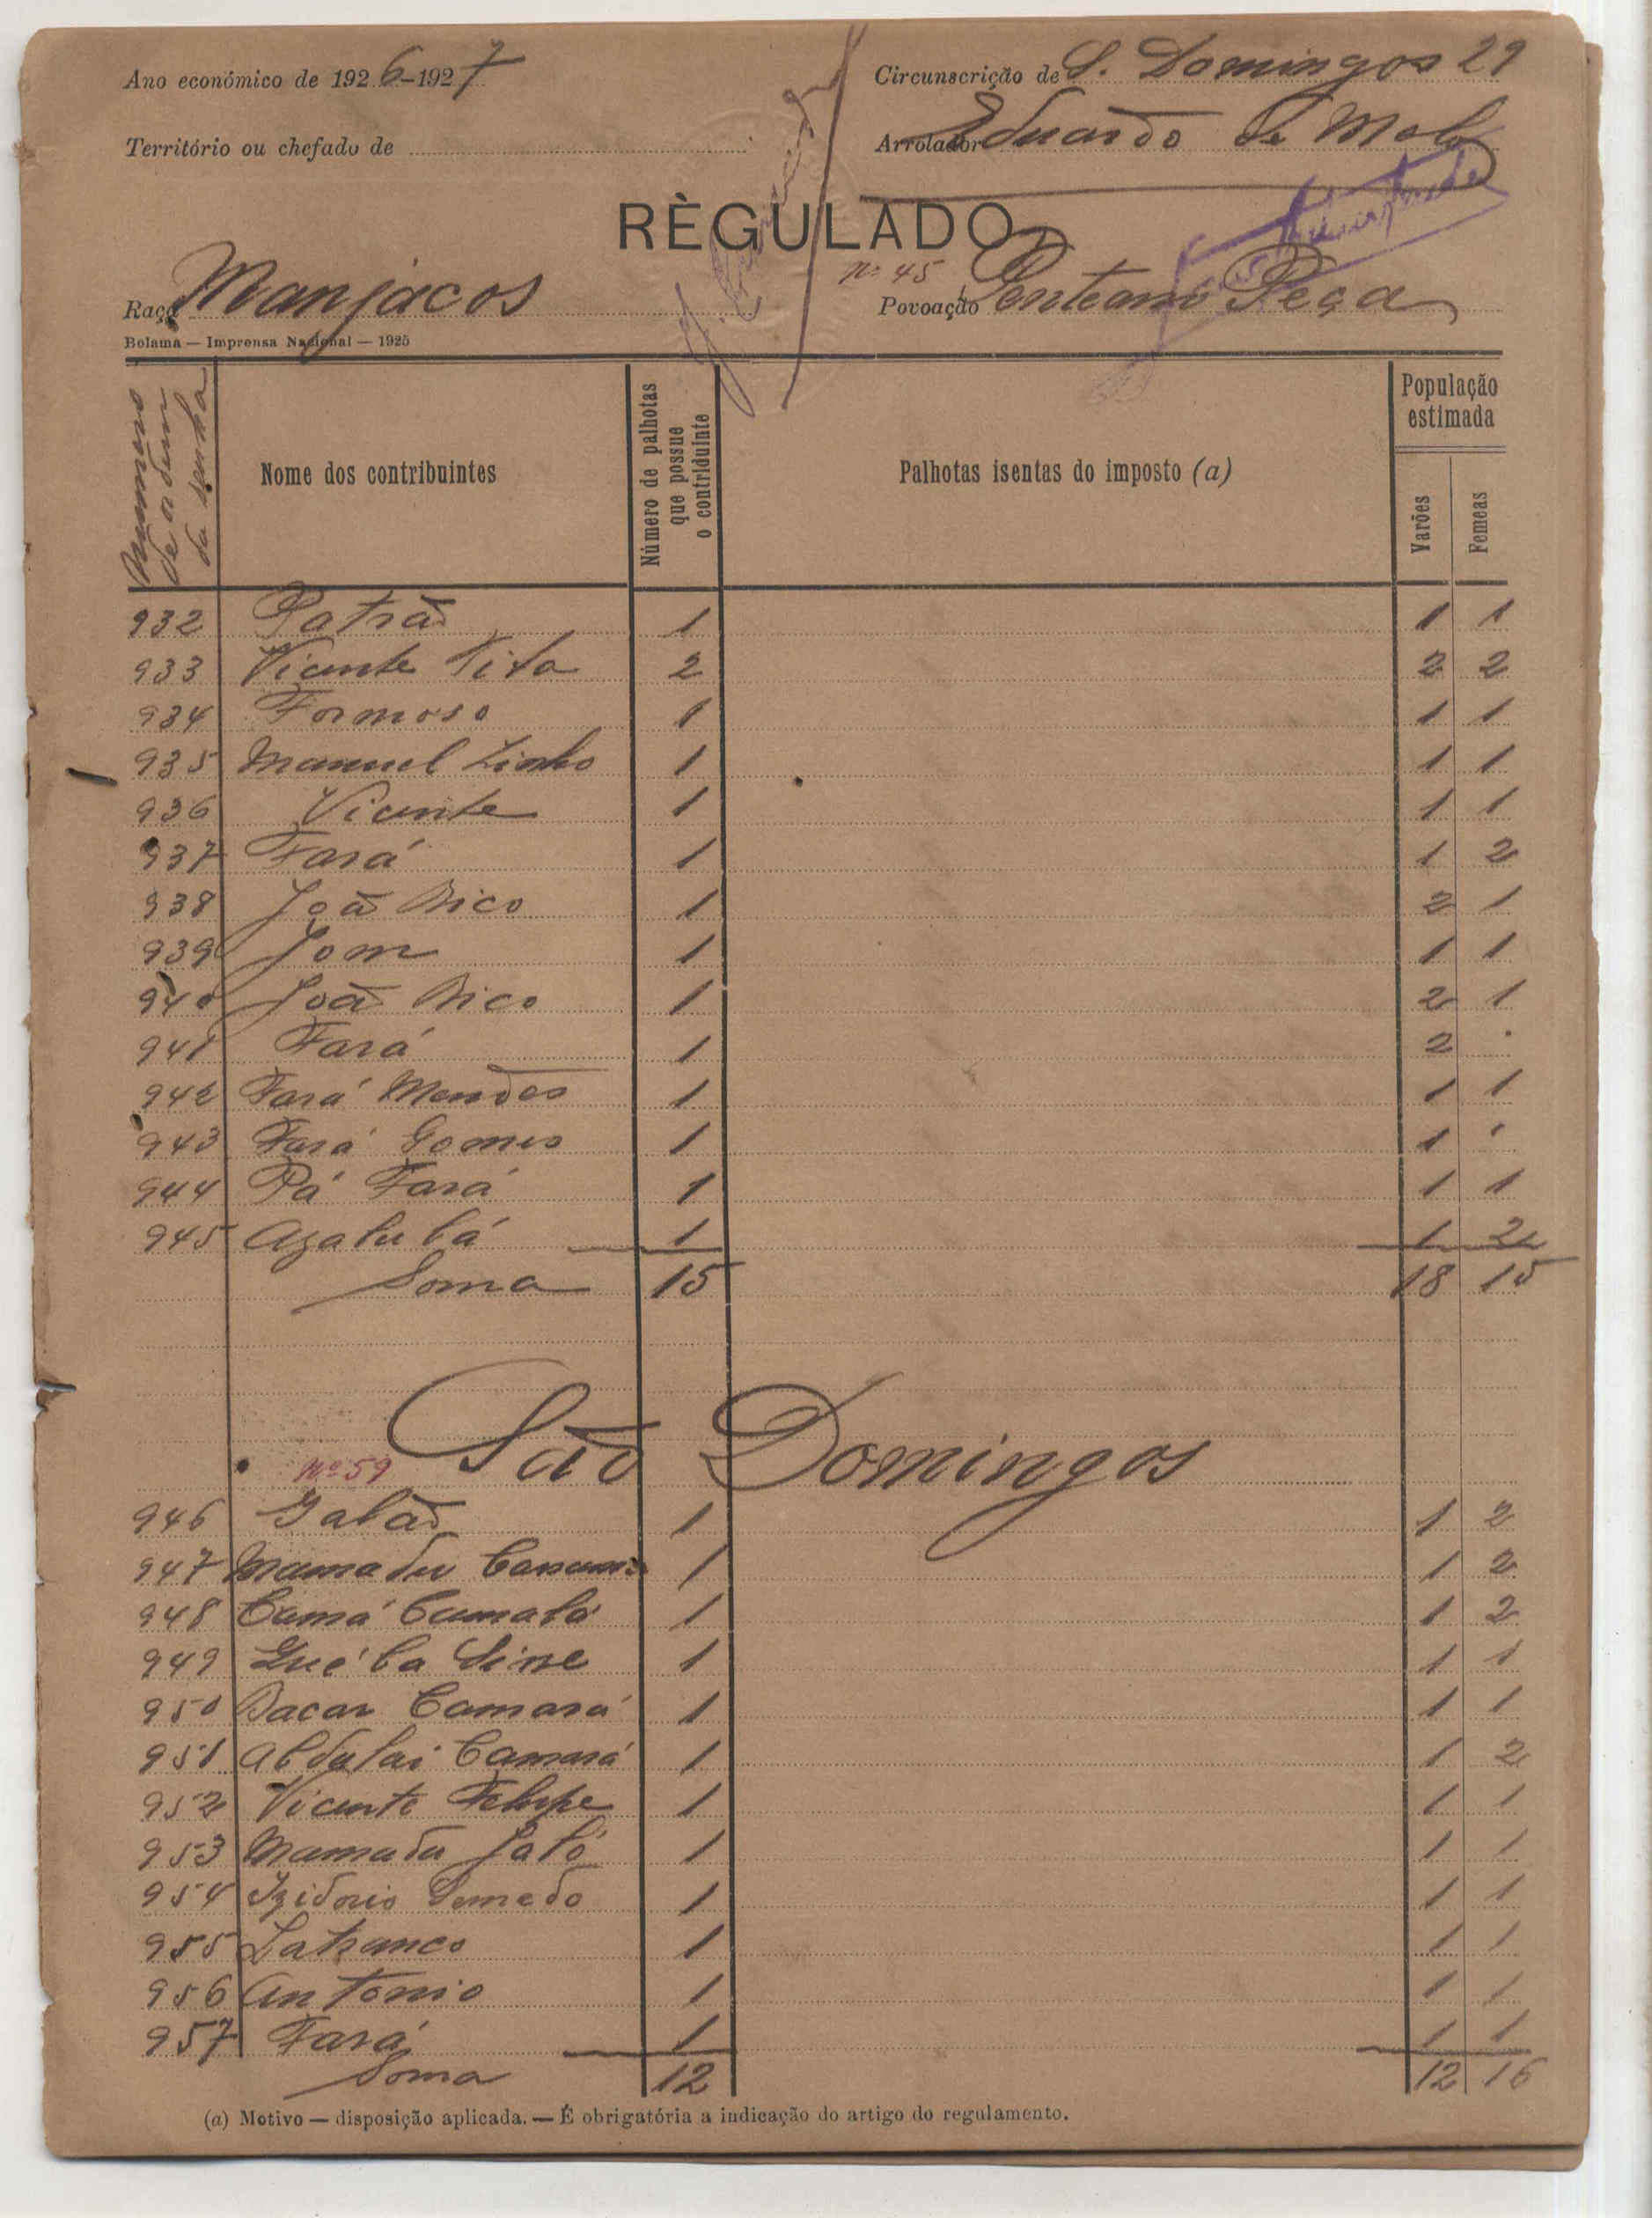 Ano económico de 1926-1927
Circunscrição de S. Domingos 29
Território ou chefado de
Arrolador Eduardo de Melo
RÈGULADO
Nº 45
Raça Manjacos
Povoação Peça
Bolama — Imprensa Nacional — 1925
Numero de ordem da senha
Nome dos contribuintes
Número de palhotas que possue o contriduinte
Palhotas isentas do imposto (a)
População estimada
Varões
Femeas
932 Patrão 1 1 1
933 Vicente Tita 2 2 2
934 Formoso 1 1 1
935 Manuel 1 1 1
936 Vicente 1 1 1
937 Fará 1 1 2
938 João Bico 1 2 1
939 Jom 1 1 1
940 João Bico 1 2 1
941 Fará 1 2 .
942 Fará Mendes 1 1 1
943 Fará Gomes 1 1 .
944 Pá Fará 1 1 1
945 1 1 2
Soma 15 18 15
São Domingos
Nº 59
946 Galão 1 1 2
947 Mamadu 1 1 2
948 Camá 1 1 2
949 1 1 1
950 Bacar Camará 1 1 1
951 Abdulai Camará 1 1 2
952 Vicente Felipe 1 1 1
953 Mamadu Jaló 1 1 1
954 Izidorio Semedo 1 1 1
955 Latranco 1 1 1
956 Antonio 1 1 1
957 Fará 1 1 1
Soma 12 12 16
(a) Motivo — disposição aplicada. — É obrigatória a indicação do artigo do regulamento.